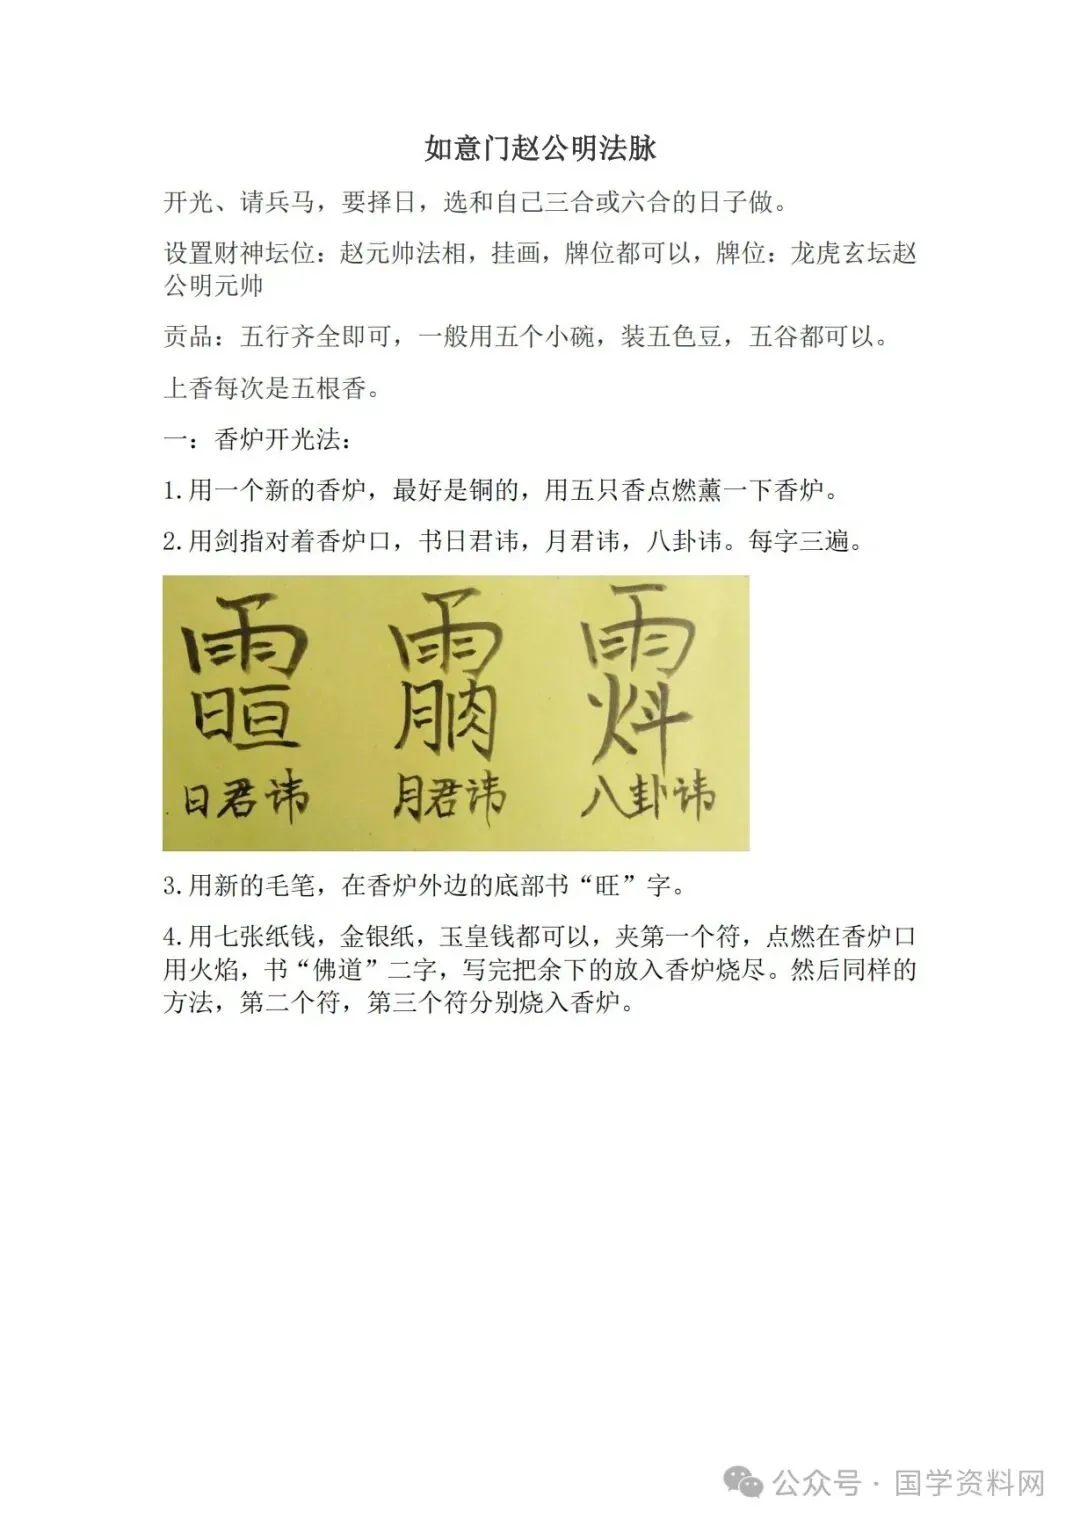 如意门赵公明法脉
开光、请兵马，要择日，选和自己三合或六合的日子做。
设置财神坛位：赵元帅法相，挂画，牌位都可以，牌位：龙虎玄坛赵
公明元帅
贡品：五行齐全即可，一般用五个小碗，装五色豆，五谷都可以。
上香每次是五根香。
一：香炉开光法：
1.用一个新的香炉，最好是铜的，用五只香点燃薰一下香炉。
2.用剑指对着香炉口，书日君讳，月君讳，八卦讳。每字三遍。
日君讳 月君讳 八卦讳
3.用新的毛笔，在香炉外边的底部书“旺”字。
4.用七张纸钱，金银纸，玉皇钱都可以，夹第一个符，点燃在香炉口
用火焰，书“佛道”二字，写完把余下的放入香炉烧尽。然后同样的
方法，第二个符，第三个符分别烧入香炉。
公众号·国学资料网